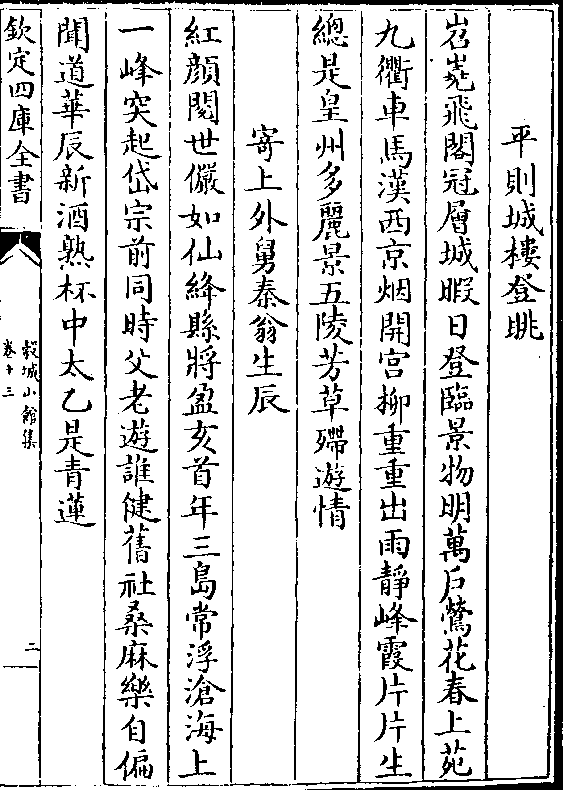 平則城樓登眺
岧嶤飛閣冠層城暇日登臨景物明萬戶鶯花春上苑
九衢車馬漢西京烟開宫柳重重出雨靜峰霞片片生
總是皇州多麗景五陵芳草殢遊情
寄上外舅秦翁生辰
紅顔閱世儼如仙絳縣將盈亥首年三島常浮滄海上
一峰突起岱宗前同時父老遊誰健舊社桑麻樂自偏
聞道華辰新酒熟杯中太乙是青蓮
欽定四庫全書
榖城山館集
卷十三
二